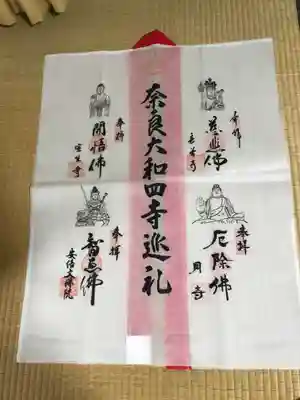 奉拝
慈悲佛
長谷寺
奉拝
厄除佛
岡寺
奈良大和四寺巡礼
奉拝
開悟佛
室生寺
奉拝
智慧佛
安倍文殊院